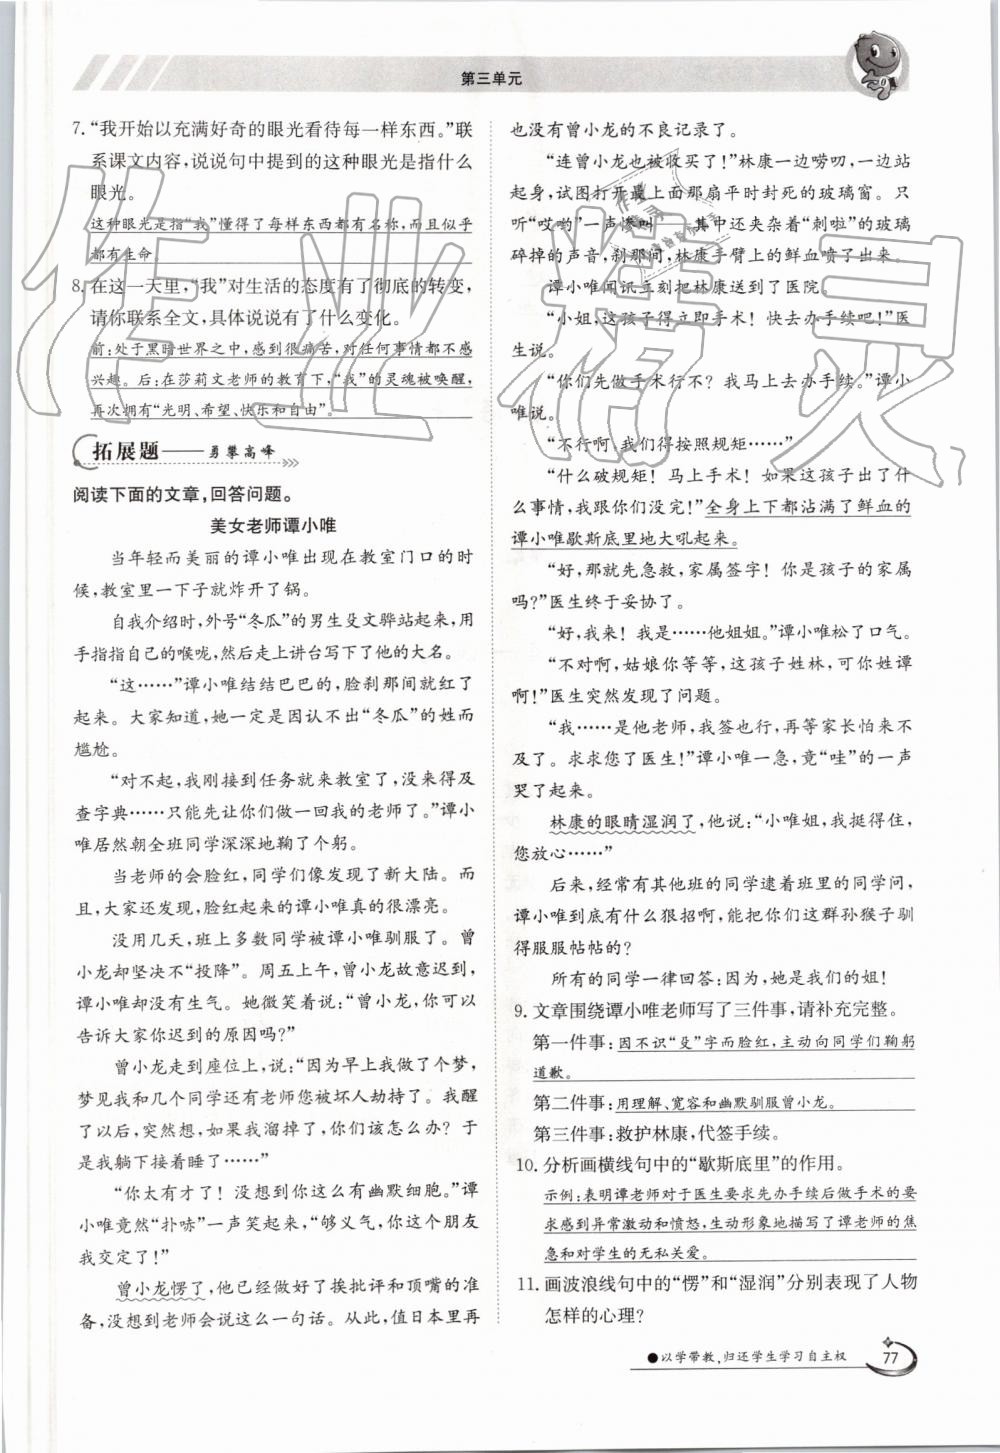 第三单元
7. “我开始以充满好奇的眼光看待每一样东西。”联
系课文内容,说说句中提到的这种眼光是指什么
眼光。
这种眼光是指“我”懂得了每样东西都有名称,而且似乎
都有生命。
8. 在这一天里,“我”对生活的态度有了彻底的转变,
请你联系全文,具体说说有了什么变化。
前:处于黑暗世界之中,感到很痛苦,对任何事情都不感
兴趣。后:在莎莉文老师的教育下,“我”的灵魂被唤醒,
再次拥有“光明、希望、快乐和自由”。
拓展题——勇攀高峰
阅读下面的文章,回答问题。
美女老师谭小唯
当年轻而美丽的谭小唯出现在教室门口的时
候,教室里一下子就炸开了锅。
自我介绍时,外号“冬瓜”的男生殳文骅站起来,用
手指指自己的喉咙,然后走上讲台写下了他的大名。
“这……”谭小唯结结巴巴的,脸刹那间就红了
起来。大家知道,她一定是因认不出“冬瓜”的姓而
尴尬。
“对不起,我刚接到任务就来教室了,没来得及
查字典……只能先让你们做一回我的老师了。”谭小
唯居然朝全班同学深深地鞠了个躬。
当老师的会脸红,同学们像发现了新大陆。而
且,大家还发现,脸红起来的谭小唯真的很漂亮。
没用几天,班上多数同学被谭小唯驯服了。曾
小龙却坚决不“投降”。周五上午,曾小龙故意迟到,
谭小唯却没有生气。她微笑着说:“曾小龙,你可以
告诉大家你迟到的原因吗?”
曾小龙走到座位上,说:“因为早晨做了个梦,
梦见我和几个同学还有老师您被坏人劫持了。我醒
了以后,突然想,如果我溜掉了,你们该怎么办?于
是我躺下接着睡了……”
“你太有才了!没想到你这么有幽默细胞。”谭
小唯竟然“扑哧”一声笑起来,“够义气,你这个朋友
我交定了!”
曾小龙愣了,他已经做好了挨批评和顶嘴的准
备,没想到老师会说这么一句话。从此,值日本里再
也没有曾小龙的不良记录了。
“连曾小龙也被收买了!”林康一边唠叨,一边站
起身,试图打开最上面那扇平时封死的玻璃窗。只
听“哎哟”一声惨叫——其中还夹杂着“刺啦”的玻璃
碎掉的声音,刹那间,林康手臂上的鲜血喷了出来。
谭小唯闻讯立刻把林康送到了医院。
“小姐,这孩子得立即手术!快去办手续吧!”医
生说。
“你们先做手术行不?我马上去办手续。”谭小
唯说。
“不行啊,我们得按照规矩……”
“什么破规矩!马上手术!如果这孩子出了什
么事情,我跟你们没完!”全身上下都沾满了鲜血的
谭小唯歇斯底里地大吼起来。
“好,那就先急救,家属签字!你是孩子的家属
吗?”医生终于妥协了。
“好,我来!我是……他姐姐。”谭小唯松了口气。
“不对啊,姑娘你等等,这孩子姓林,可你姓谭
啊!”医生突然发现了问题。
“我……是他老师,我签也行,再等家长怕来不
及了。求求您了医生!”谭小唯一急,竟“哇”的一声
哭了起来。
林康的眼睛湿润了,他说:“小唯姐,我挺得住,
您放心……”
后来,经常有其他班的同学逮着班里的同学问,
谭小唯到底有什么狠招啊,能把你们这群孙猴子驯
得服服帖帖的?
所有的同学一律回答:因为,她是我们的姐!
9. 文章围绕谭小唯老师写了三件事,请补充完整。
第一件事:因不识“殳”字而脸红,主动向同学们鞠躬
道歉。
第二件事:用理解、宽容和幽默驯服曾小龙。
第三件事:救护林康,代签手续。
10. 分析画横线句中的“歇斯底里”的作用。
示例:表明谭老师对于医生要求先办手续后做手术的要
求感到异常激动和愤怒,生动形象地描写了谭老师的焦
急和对学生的无私关爱。
11. 画波浪线句中的“愣”和“湿润”分别表现了人物
怎样的心理?
●以学带教,归还学生学习自主权
77
作业精灵